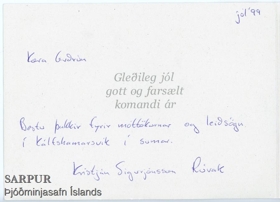 jól '99
Kæra Guðrún
Gleðileg jól
gott og farsælt
komandi ár
Bestu þakkir fyrir móttökurnar og leiðsögn
í Kálfshamarsvík í sumar.
Kristján Sigurjónsson
SARPUR
Þjóðminjasafn Íslands